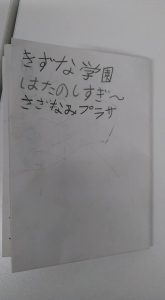 きずな学園
はたのしすぎ〜
さざなみプラザ